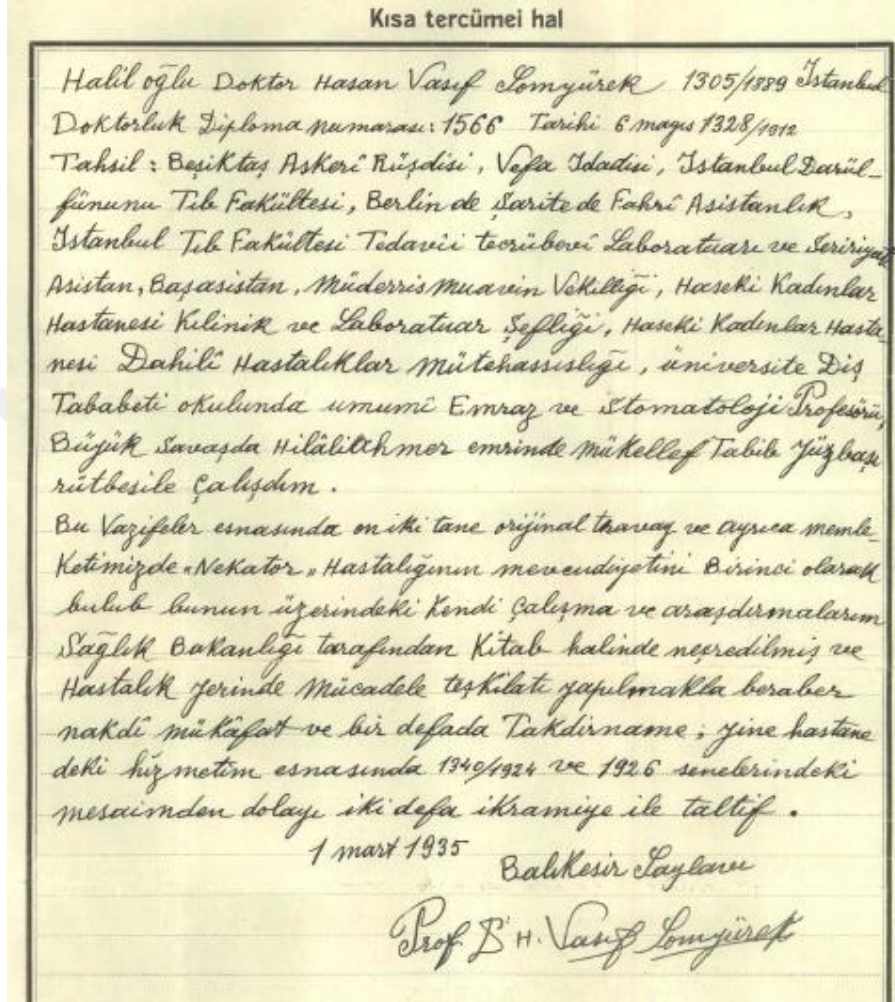 Kısa tercümei hal
Halil oğlu Doktor Hasan Vasıf Somyürek 1305/1889 İstanbul
Doktorluk Diploma numarası: 1566 Tarihi 6 mayıs 1328/1912
Tahsil: Beşiktaş Askerî Rüşdisi, Vefa İdadisi, İstanbul Darül-
fünunu Tıb Fakültesi, Berlin de Şarite de Fahrî Asistanlık,
İstanbul Tıb Fakültesi Tedavii tecrübevî Laboratuarı ve Seririyatı
Asistan, Başasistan, Müderris Muavin Vekilliği, Haseki Kadınlar
Hastanesi Kılinik ve Laboratuar Şefliği, Haseki Kadınlar Hasta-
nesi Dahilî Hastalıklar Mütehassıslığı, üniversite Diş
Tababeti okulunda umumî Emraz ve Stomatoloji Profesörü,
Büyük Savaşda Hilâliahmer emrinde mükellef Tabib Yüzbaşı
rütbesile Çalışdım.
Bu Vazifeler esnasında on iki tane orijinal travay ve ayrıca memle-
Ketimizde "Nekator" Hastalığının mevcudiyetini Birinci olarak
bulub bunun üzerindeki Kendi Çalışma ve araşdırmalarım
Sağlık Bakanlığı tarafından Kitab halinde neşredilmiş ve
Hastalık Yerinde Mücadele teşkilatı yapılmakla beraber
nakdî mükâfat ve bir defada Takdirname; yine hastane
deki hizmetim esnasında 1340/1924 ve 1926 senelerindeki
mesaimden dolayı iki defa ikramiye ile taltif.
1 mart 1935
Balıkesir Saylavı
Prof. Dr H. Vasıf Somyürek